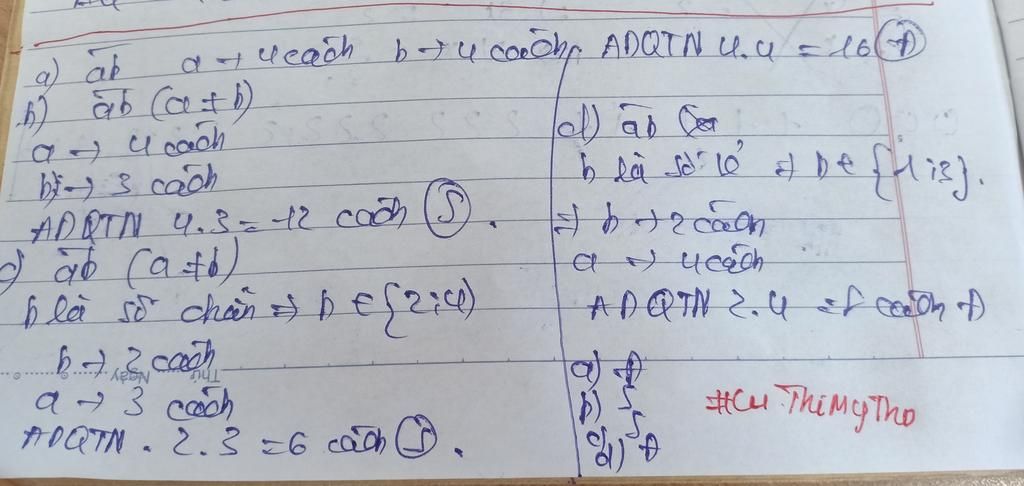 a) ab a → 4 cách b → 4 cách, ADQTN 4.4 = 16 Đ
b) ab (a ≠ b)
a → 4 cách
b → 3 cách
ADQTN 4.3 = 12 cách S.
c) ab (a ≠ b)
b là số chẵn ⇒ b ∈ {2;4}
b → 2 cách
a → 3 cách
ADQTN. 2.3 = 6 cách S.
d) ab
b là số lẻ ⇒ b ∈ {1;3}.
⇒ b → 2 cách
a → 4 cách
ADQTN 2.4 = 8 cách Đ
a) Đ
b) S
c) S
d) Đ
#CuThiMyTho
Thứ Ngày